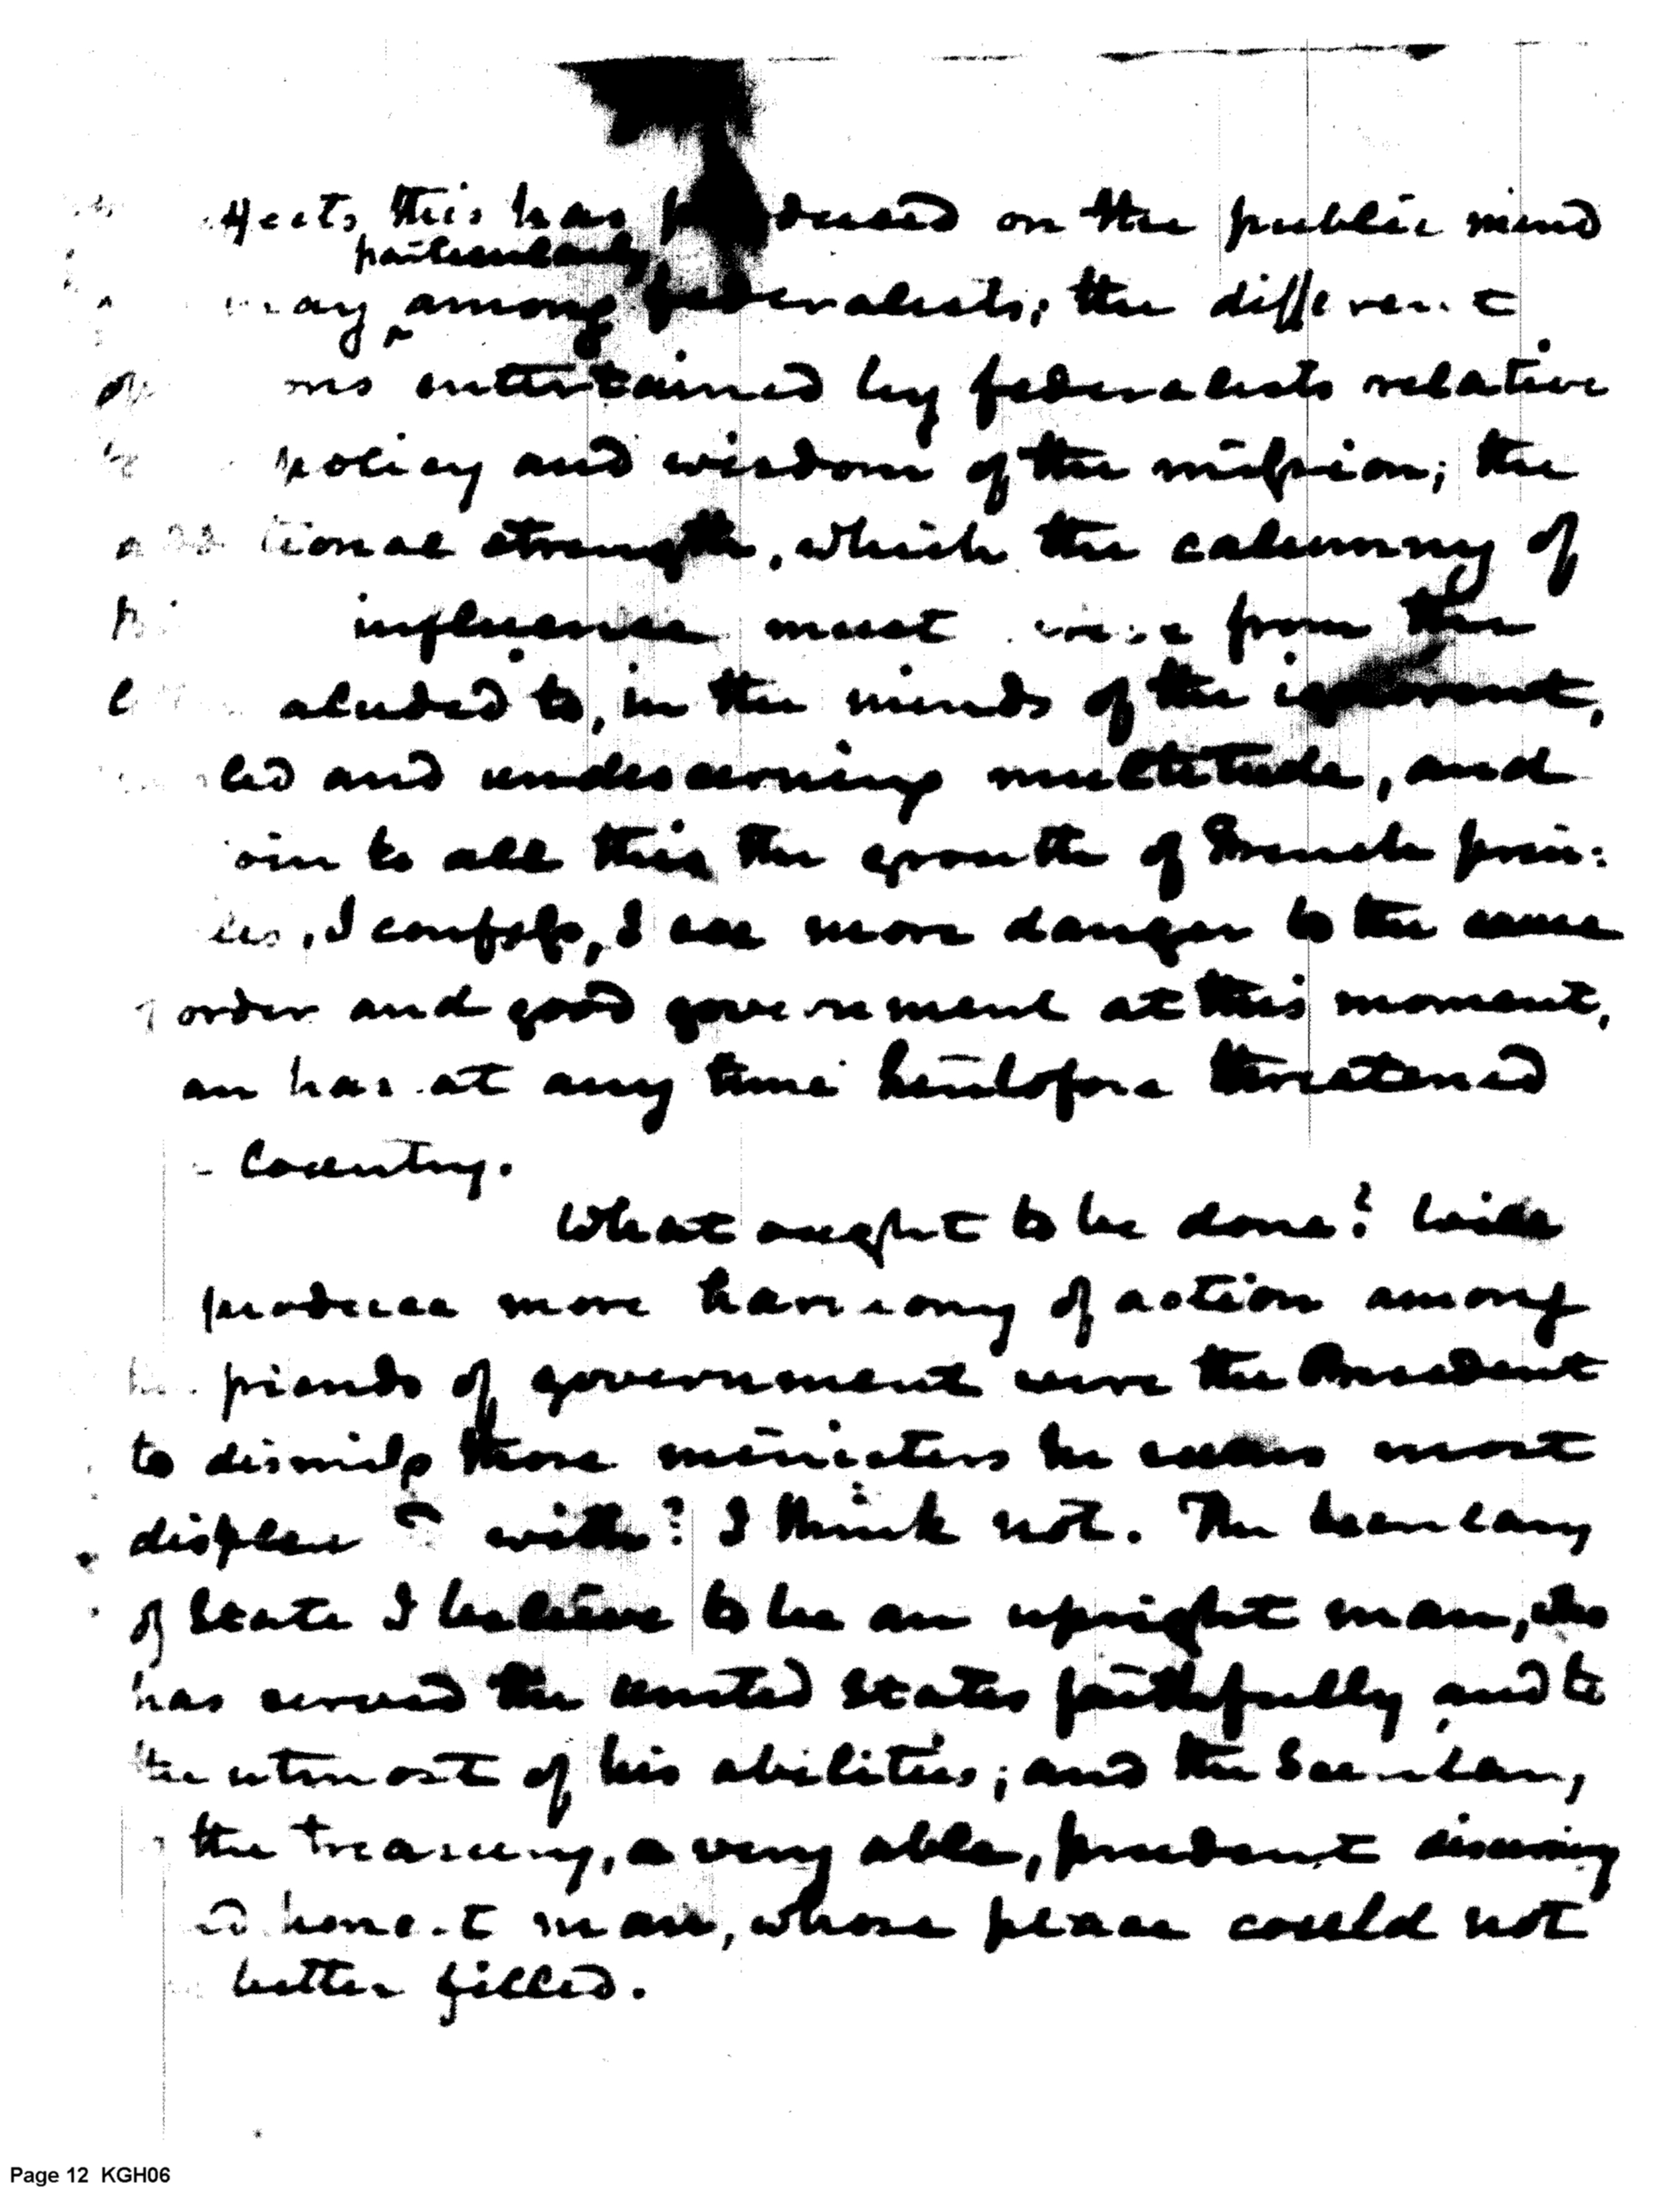 effects this has produced on the public mind
particularly
may among federalists; the different
entertained by federalists relative
policy and wisdom of the mission; the
additional strength, which the calumny of
influence must from the
aluded to, in the minds of the ignorant,
and undescerning multitude, and
to all this the growth of French prin:
I confess, I see more danger to the cause
order and good government at this moment,
has at any time heretofore threatened
Country.
What ought to be done? Will
produce more harmony of action among
friends of government were the President
to dismiss those ministers he seems most
displeased with? I think not. The Secretary
of State I believe to be an upright man, who
has served the united States faithfully and to
the utmost of his abilities; and the Secretary
the treasury, a very able, prudent discerning
honest man, whose place could not
better filled.
Page 12 KGH06